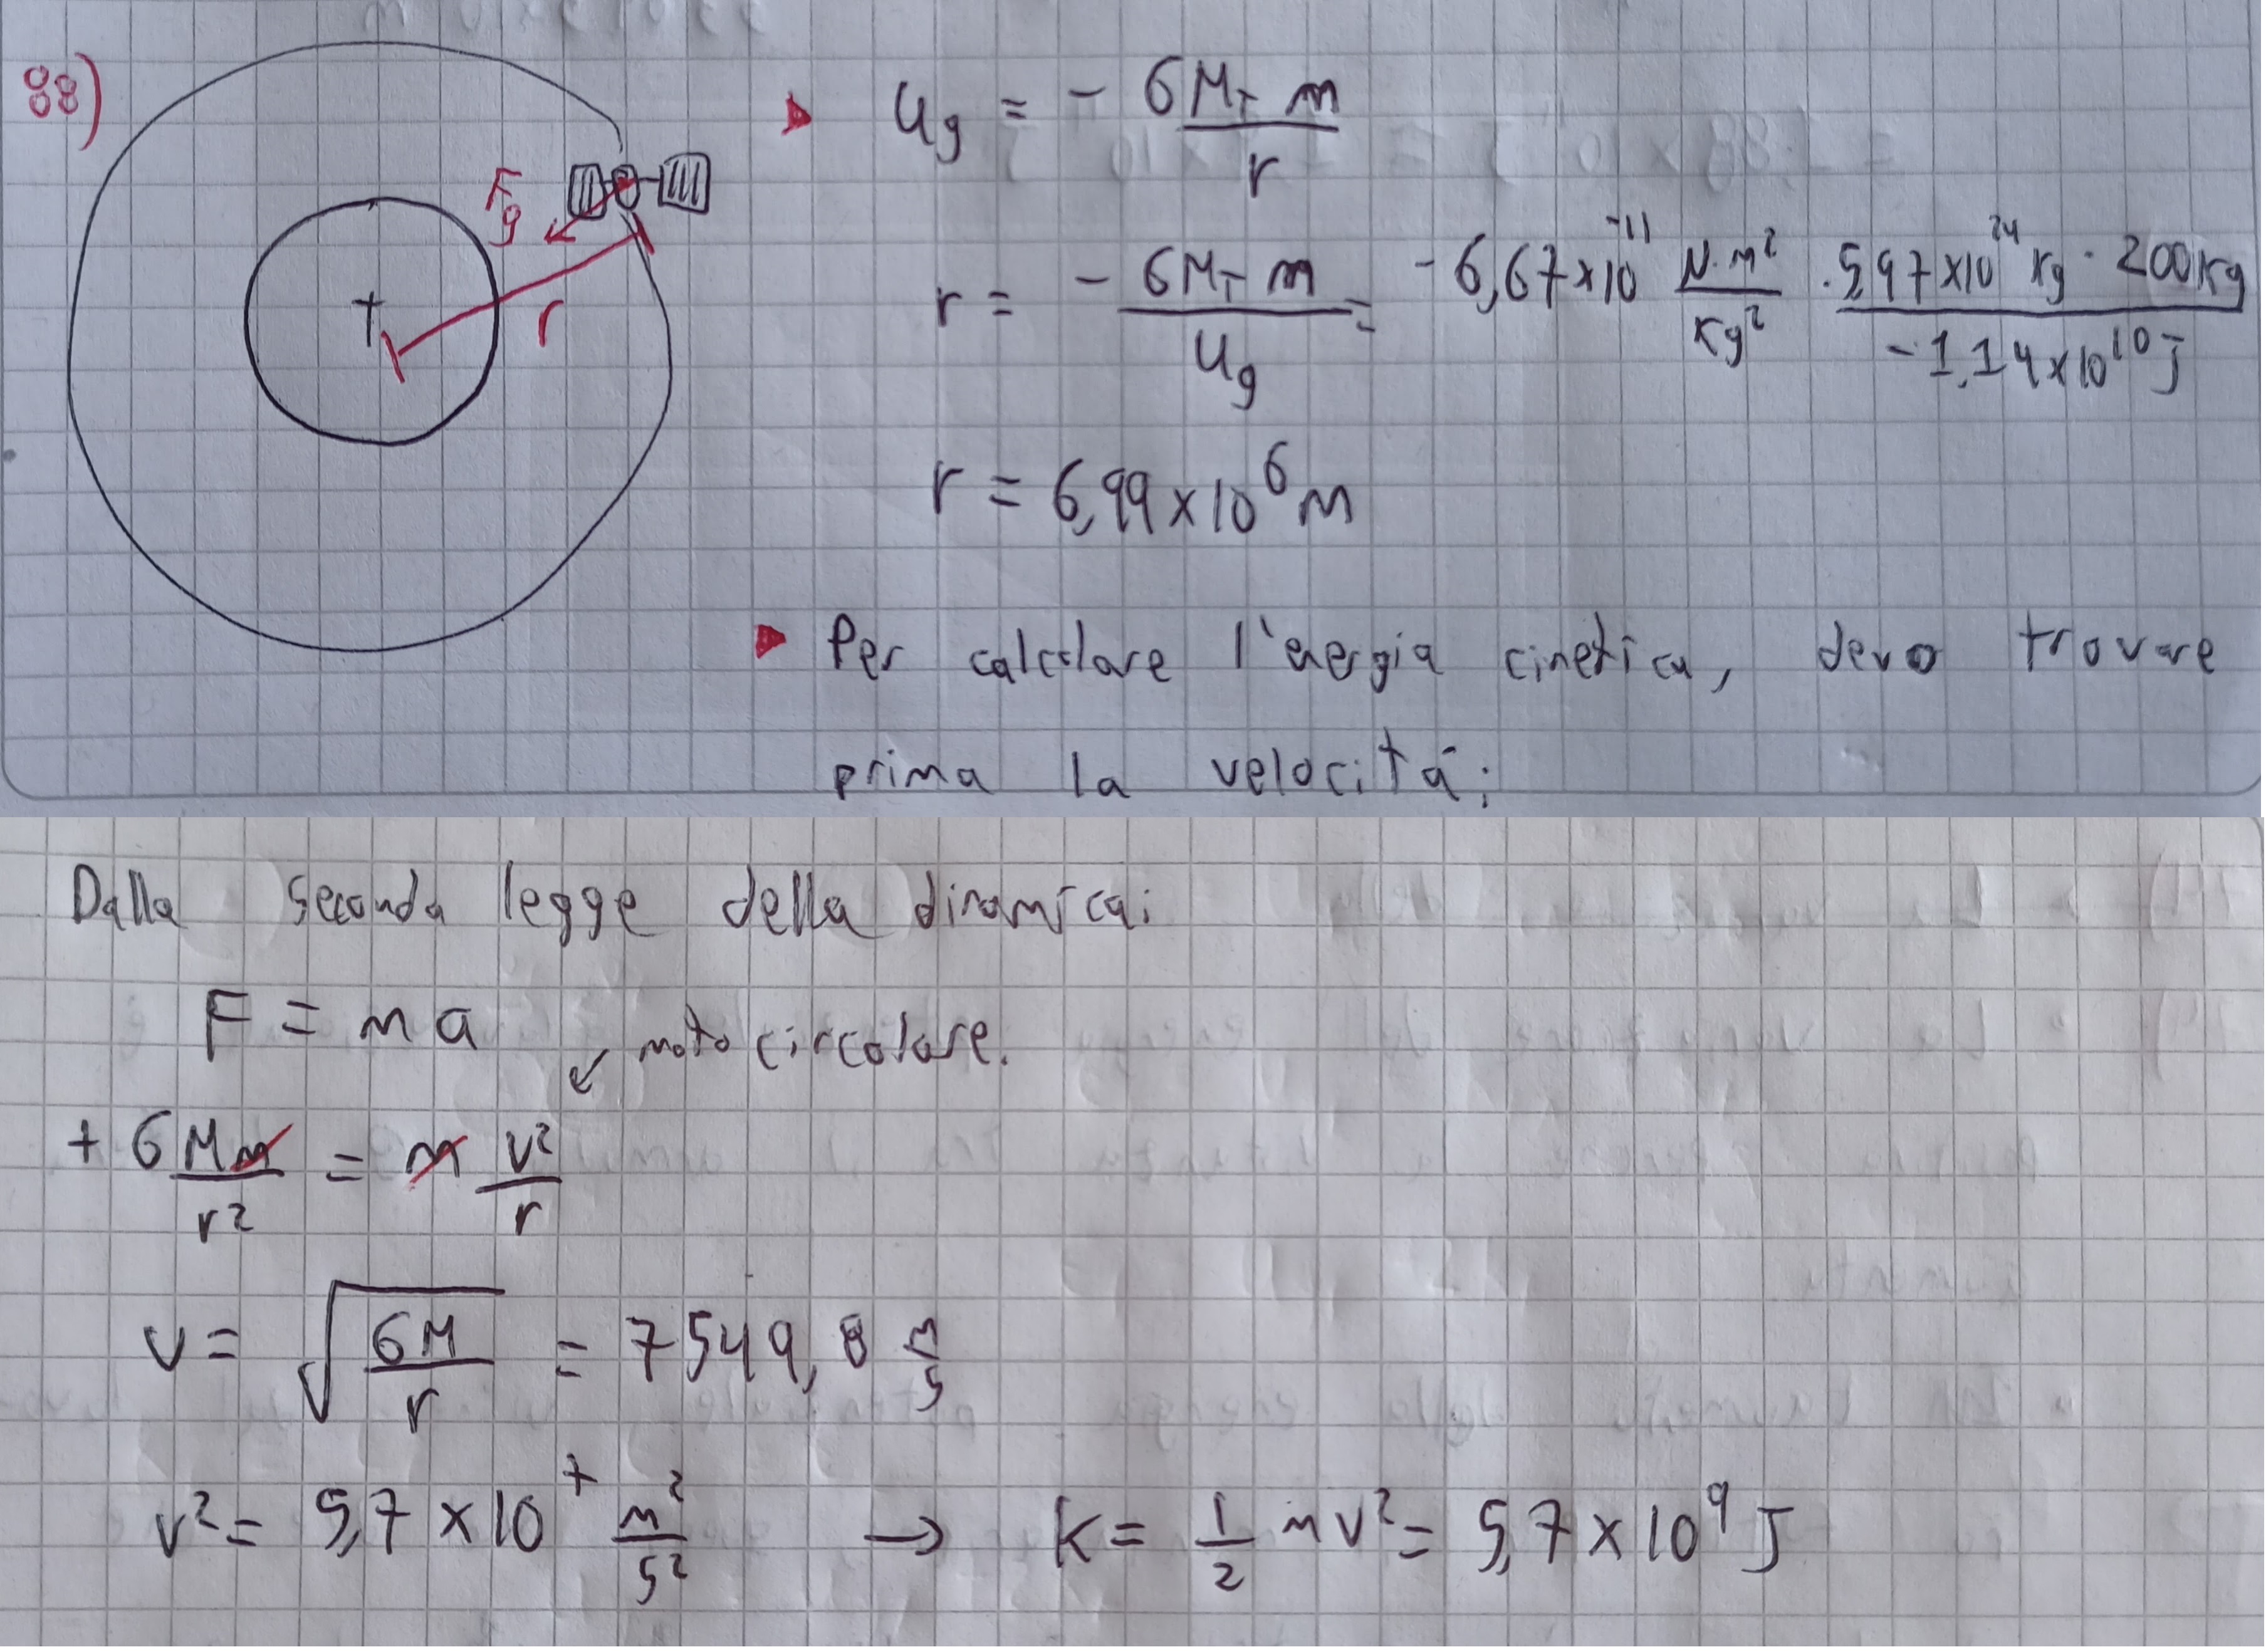 88)
F_g
r
▶ U_g = - G M_T m / r
r = - G M_T m / U_g = -6,67×10^-11 N·m²/kg² · 5,97×10^24 kg · 200kg / -1,14×10^10 J
r = 6,99×10^6 m
▶ Per calcolare l'energia cinetica, devo trovare
prima la velocità:
Dalla seconda legge della dinamica:
F = m a
↙ moto circolare.
+ G M m / r² = m v² / r
v = √(G M / r) = 7549,8 m/s
v² = 5,7 × 10^7 m²/s² → K = 1/2 m v² = 5,7 × 10^9 J